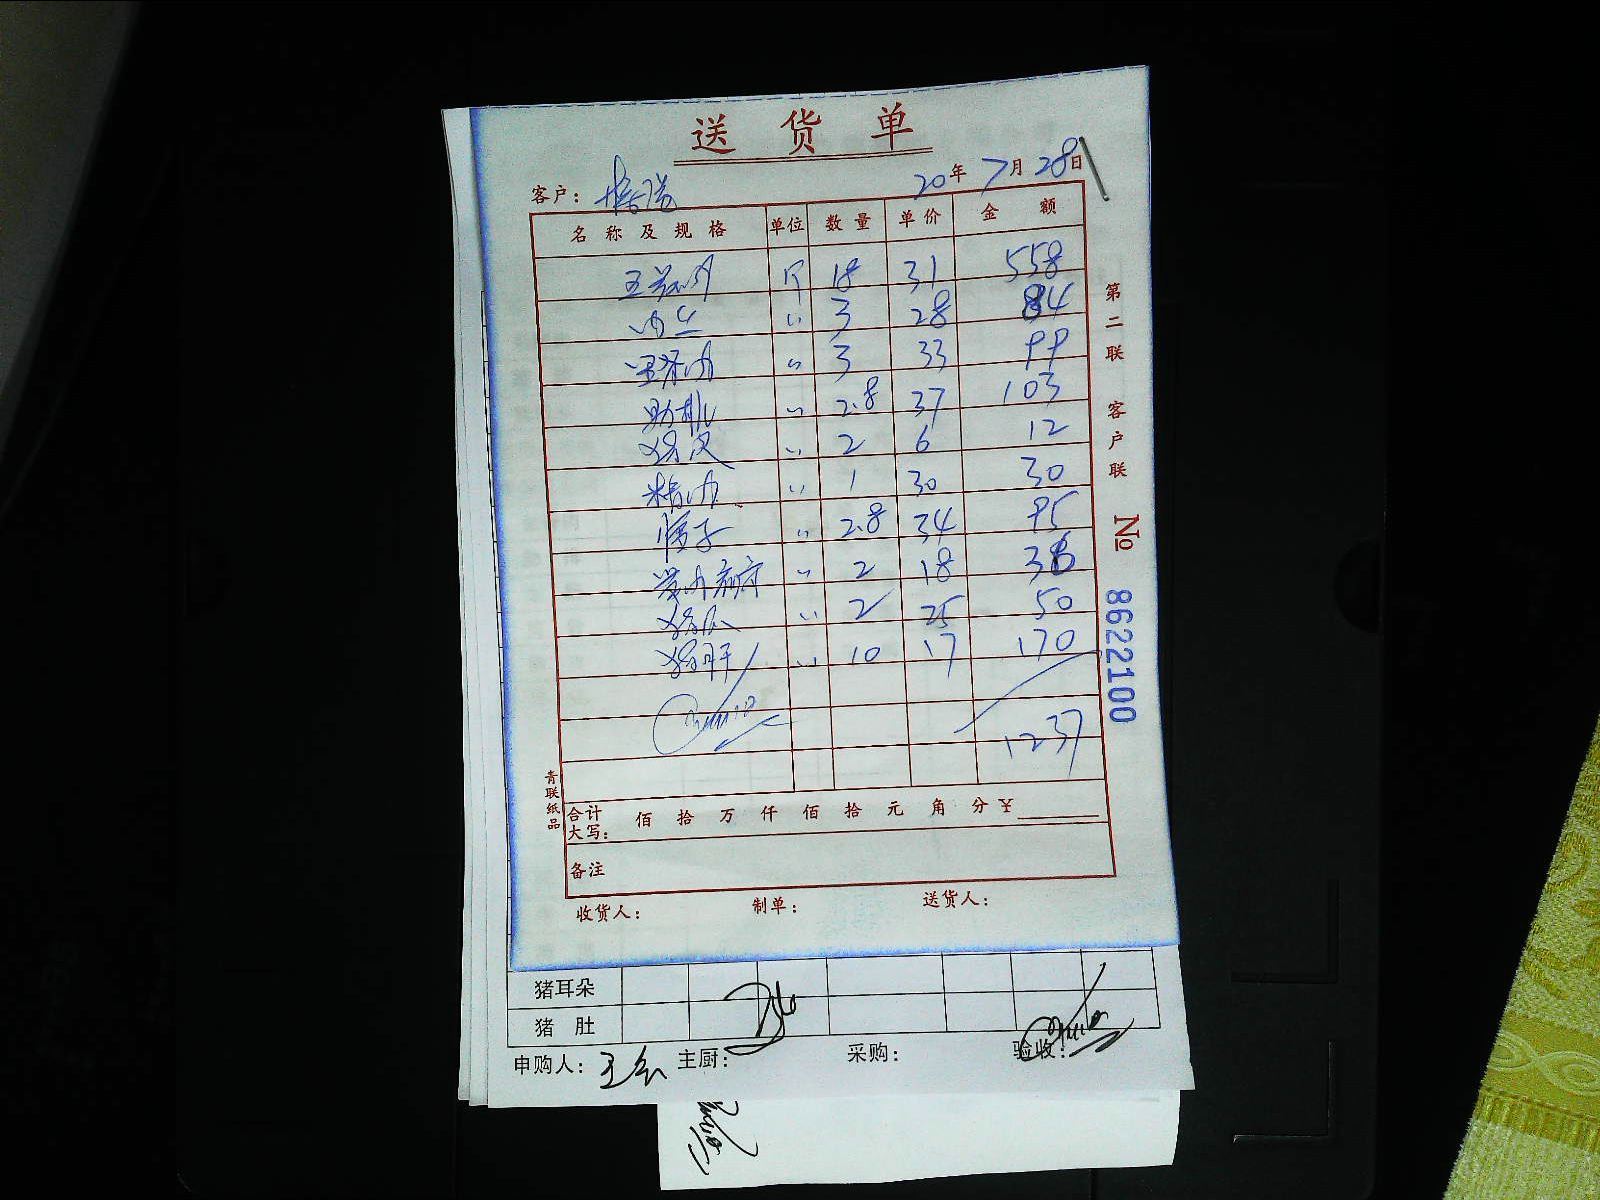 送货单
客户： 20年7月28日
名称及规格 单位 数量 单价 金额
五花肉 斤 18 31 558
肉丝 〃 3 28 84
里脊肉 〃 3 33 99
肋排 〃 2.8 37 103
猪皮 〃 2 6 12
精肉 〃 1 30 30
腰子 〃 2.8 34 95
〃 2 18 36
〃 2 25 50
猪肝 〃 10 17 170
1237
合计大写： 佰 拾 万 仟 佰 拾 元 角 分 ¥
备注
收货人： 制单： 送货人：
第二联 客户联
№ 8622100
青联纸品
猪耳朵
猪 肚
申购人： 主厨： 采购： 验收：